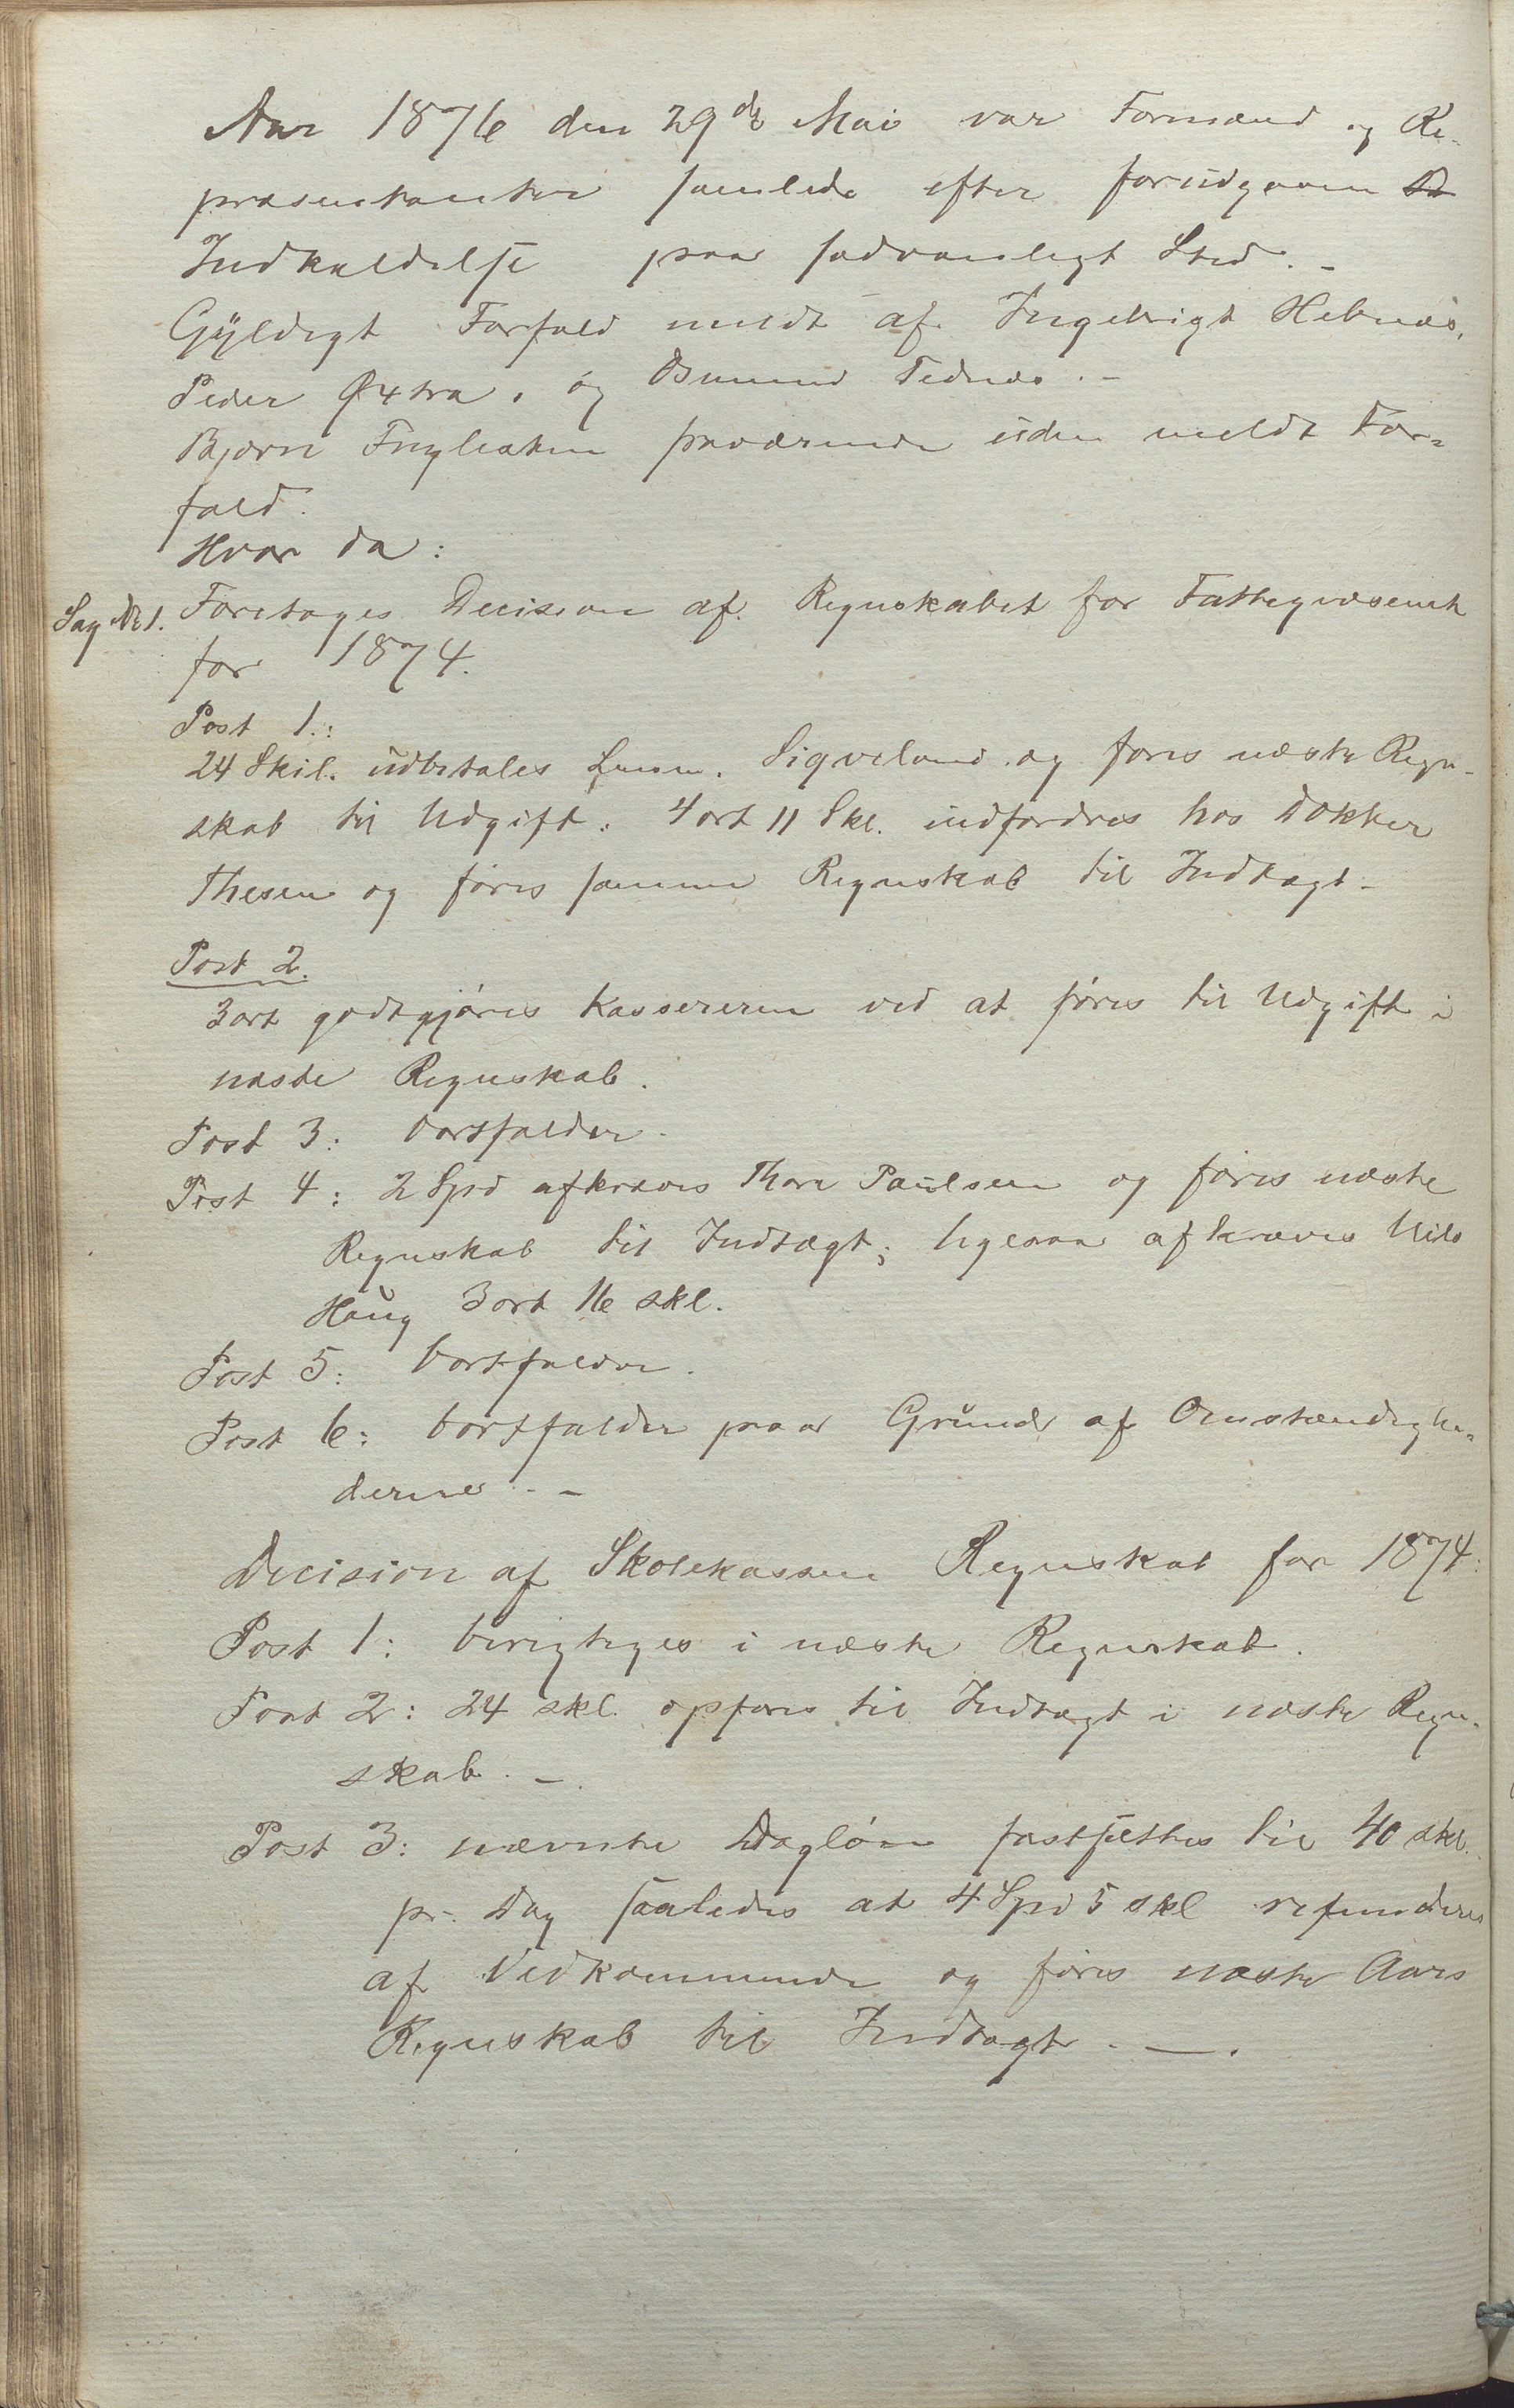 Aar 1876 den 29de Mai var Formænd og Re-
præsentanter samlede efter forudgaaen
Indkaldelse paa sædvanligt Sted. -
Gyldigt Forfald meldt af Ingebrigt Hebnæs,
Peder Øxtra, og Osmund Tednæs. -
Bjørn fraværende uden meldt For-
fald.
Hvor da:
Sag No 1. Foretoges Decision af Regnskabet for Fattigvæsenet
for 1874.
Post 1.:
24 Skil. udbetales Lensm. Siqveland og føres næste Regn-
skab til Udgift. 4 ort 11 Skl. indfordres hos Dokter
Thesen og føres samme Regnskab til Indtægt -
Post 2.
3 ort godtgjøres Kassereren ved at føres til Udgift i
næste Regnskab.
Post 3: bortfalder.
Post 4: 2 Spd afkræves Thore Paulsen og føres næste
Regnskab til Indtægt; ligesaa afkræves Nils
Haug 3 ort 16 skl.
Post 5: bortfalder.
Post 6: bortfalder paa Grund af Omstændighe-
derne. -
Decision af Skolekassens Regnskab for 1874:
Post 1: berigtiges i næste Regnskab.
Post 2: 24 skl. opføres til Indtægt i næste Regn-
skab. -
Post 3: nævnte Dagløn fastsættes til 40 skl.
pr. Dag saaledes at 4 Spd 5 skl refunderes
af Vedkommende og føres næste Aars
Regnskab til Indtægt. -.